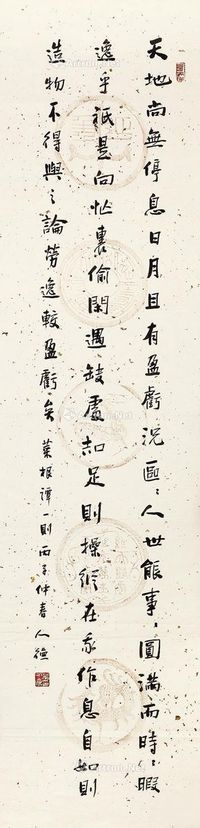 天地尚無停息日月且有盈虧況區〻人世能事〻圓滿而時〻暇
逸乎祇是向忙裏偷閑遇缺處知足則操縱在我作息自如則
造物不得與之論勞逸較盈虧矣 菜根譚一則丙子仲春人德